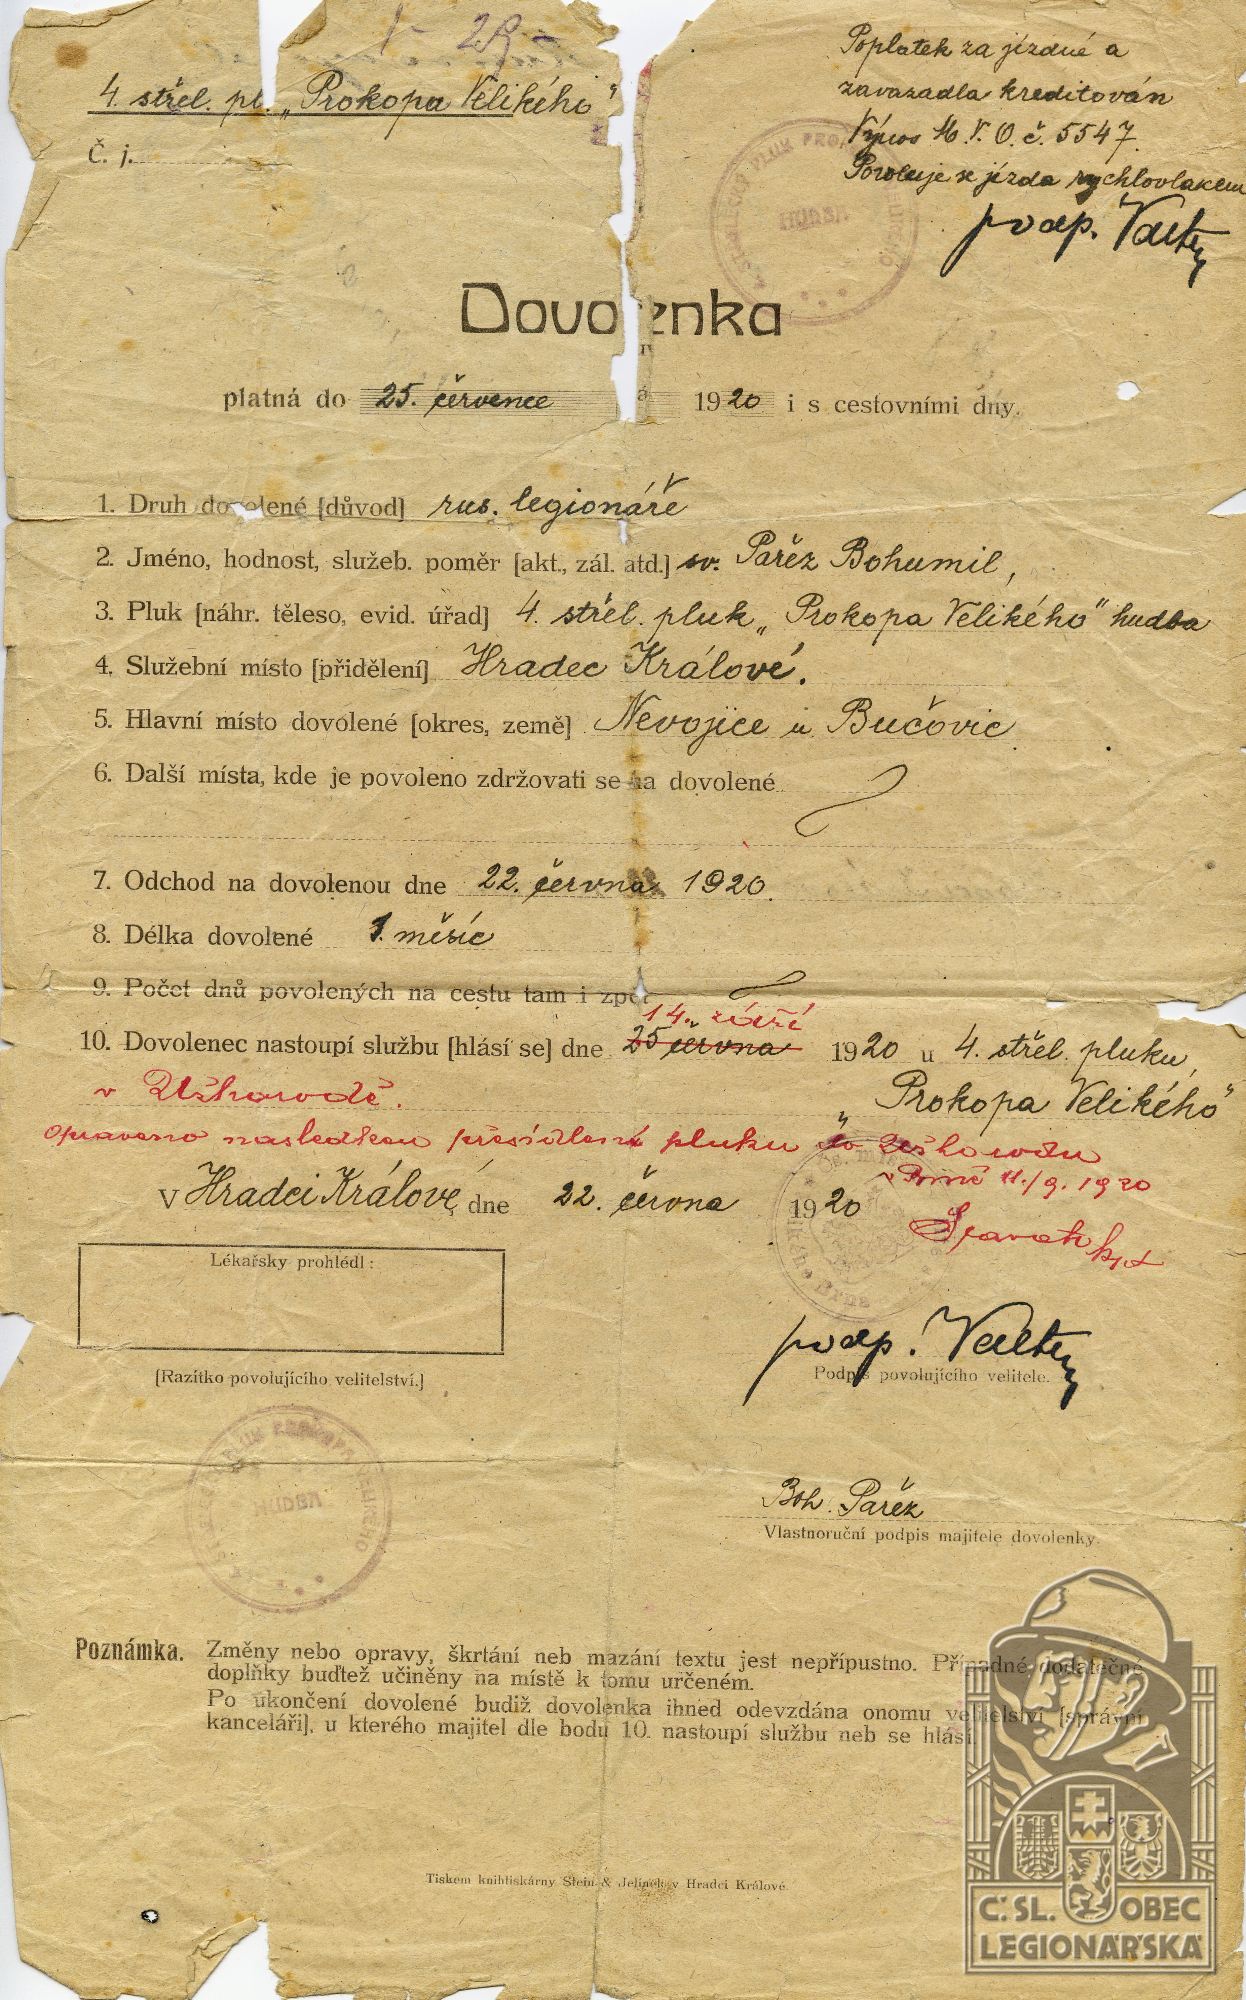 4. střel. pl. „Prokopa Velikého"
Č. j.
Poplatek za jízdné a
zavazadla kreditován
Výnos M. V. O. č. 5547.
Povoluje se jízda rychlovlakem
podp.
HUDBA
Dovolenka
platná do 25. července 1920 i s cestovními dny.
1. Druh dovolené [důvod] rus. legionáře
2. Jméno, hodnost, služeb. poměr [akt., zál. atd.] sv. Pařéz Bohumil,
3. Pluk [náhr. těleso, evid. úřad] 4. střel. pluk „Prokopa Velikého" hudba
4. Služební místo [přidělení] Hradec Králové.
5. Hlavní místo dovolené [okres, země] Nevojice u Bučovic
6. Další místa, kde je povoleno zdržovati se na dovolené
7. Odchod na dovolenou dne 22. června 1920.
8. Délka dovolené 1. měsíc
9. Počet dnů povolených na cestu tam i zpět
14. září
10. Dovolenec nastoupí službu [hlásí se] dne 25 června 1920 u 4. střel. pluku,
v Užhorodě. „Prokopa Velikého"
opraveno následkem přesídlení pluku do Užhorodu
v Brně 11./9. 1920
V Hradci Králové, dne 22. června 1920
Lékařsky prohlédl:
podp.
[Razítko povolujícího velitelství.]
Podpis povolujícího velitele.
HUDBA
Boh. Pařéz
Vlastnoruční podpis majitele dovolenky.
Poznámka. Změny nebo opravy, škrtání neb mazání textu jest nepřípustno. Případné dodatečné
doplňky buďtež učiněny na místě k tomu určeném.
Po ukončení dovolené budiž dovolenka ihned odevzdána onomu velitelství [správní
kanceláři], u kterého majitel dle bodu 10. nastoupí službu neb se hlásí.
Tiskem knihtiskárny Stein & Jelínek v Hradci Králové.
Č.SL. OBEC
LEGIONÁŘSKÁ